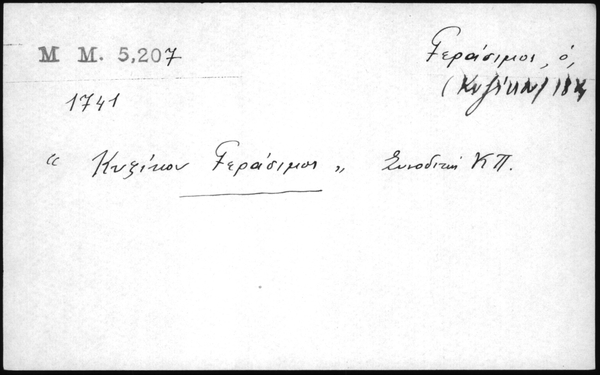 M M. 5,207
Γεράσιμος, ὁ,
(Κυζίκου)
1741
" Κυζίκου Γεράσιμος „ Συνοδικὴ ΚΠ.